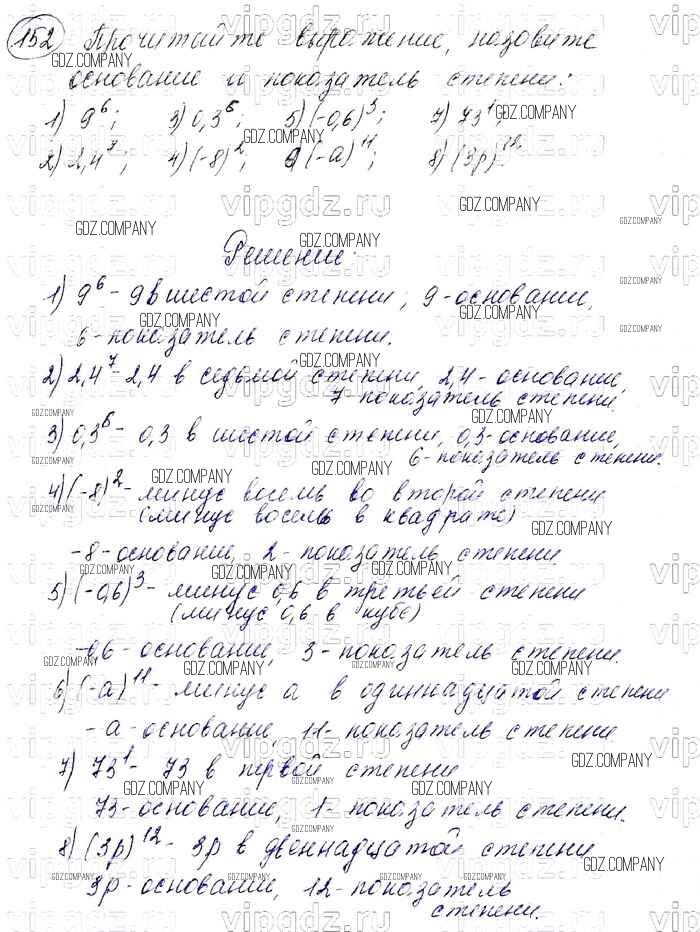 152 Прочитайте выражение, назовите
основание и показатель степени:
1) 9⁶; 3) 0,3⁶; 5) (-0,6)³; 7) 73¹;
2) 2,4⁷; 4) (-8)²; 6) (-a)¹¹; 8) (3p)¹²
Решение:
1) 9⁶ - 9 в шестой степени; 9 - основание,
6 - показатель степени.
2) 2,4⁷ - 2,4 в седьмой степени, 2,4 - основание,
7 - показатель степени.
3) 0,3⁶ - 0,3 в шестой степени, 0,3 - основание,
6 - показатель степени.
4) (-8)² - минус восемь во второй степени
(минус восемь в квадрате)
-8 - основание, 2 - показатель степени
5) (-0,6)³ - минус 0,6 в третьей степени
(минус 0,6 в кубе)
-0,6 - основание, 3 - показатель степени.
6) (-a)¹¹ - минус a в одиннадцатой степени
-a - основание, 11 - показатель степени
7) 73¹ - 73 в первой степени
73 - основание, 1 - показатель степени.
8) (3p)¹² - 3p в двеннадцатой степени
3p - основание, 12 - показатель
степени.
vipgdz.ru
GDZ.COMPANY